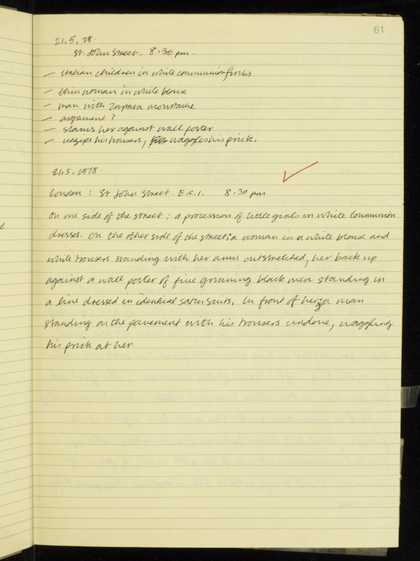 61
21.5.78
St. John Street. 8.30 pm.
– Italian children in white communion frocks
– thin woman in white blouse
– man with Zapata moustache
– argument?
– slams her against wall poster
– unzips his trousers, waggles his prick.
21.5.1978
London: St John Street E.C.1. 8.30 pm
On one side of the street: a procession of little girls in white communion
dresses. On the other side of the street: a woman in a white blouse and
white trousers standing with her arms outstretched, her back up
against a wall poster of five grinning black men standing in
a line dressed in identical satin suits. In front of her a man
standing on the pavement with his trousers undone, waggling
his prick at her